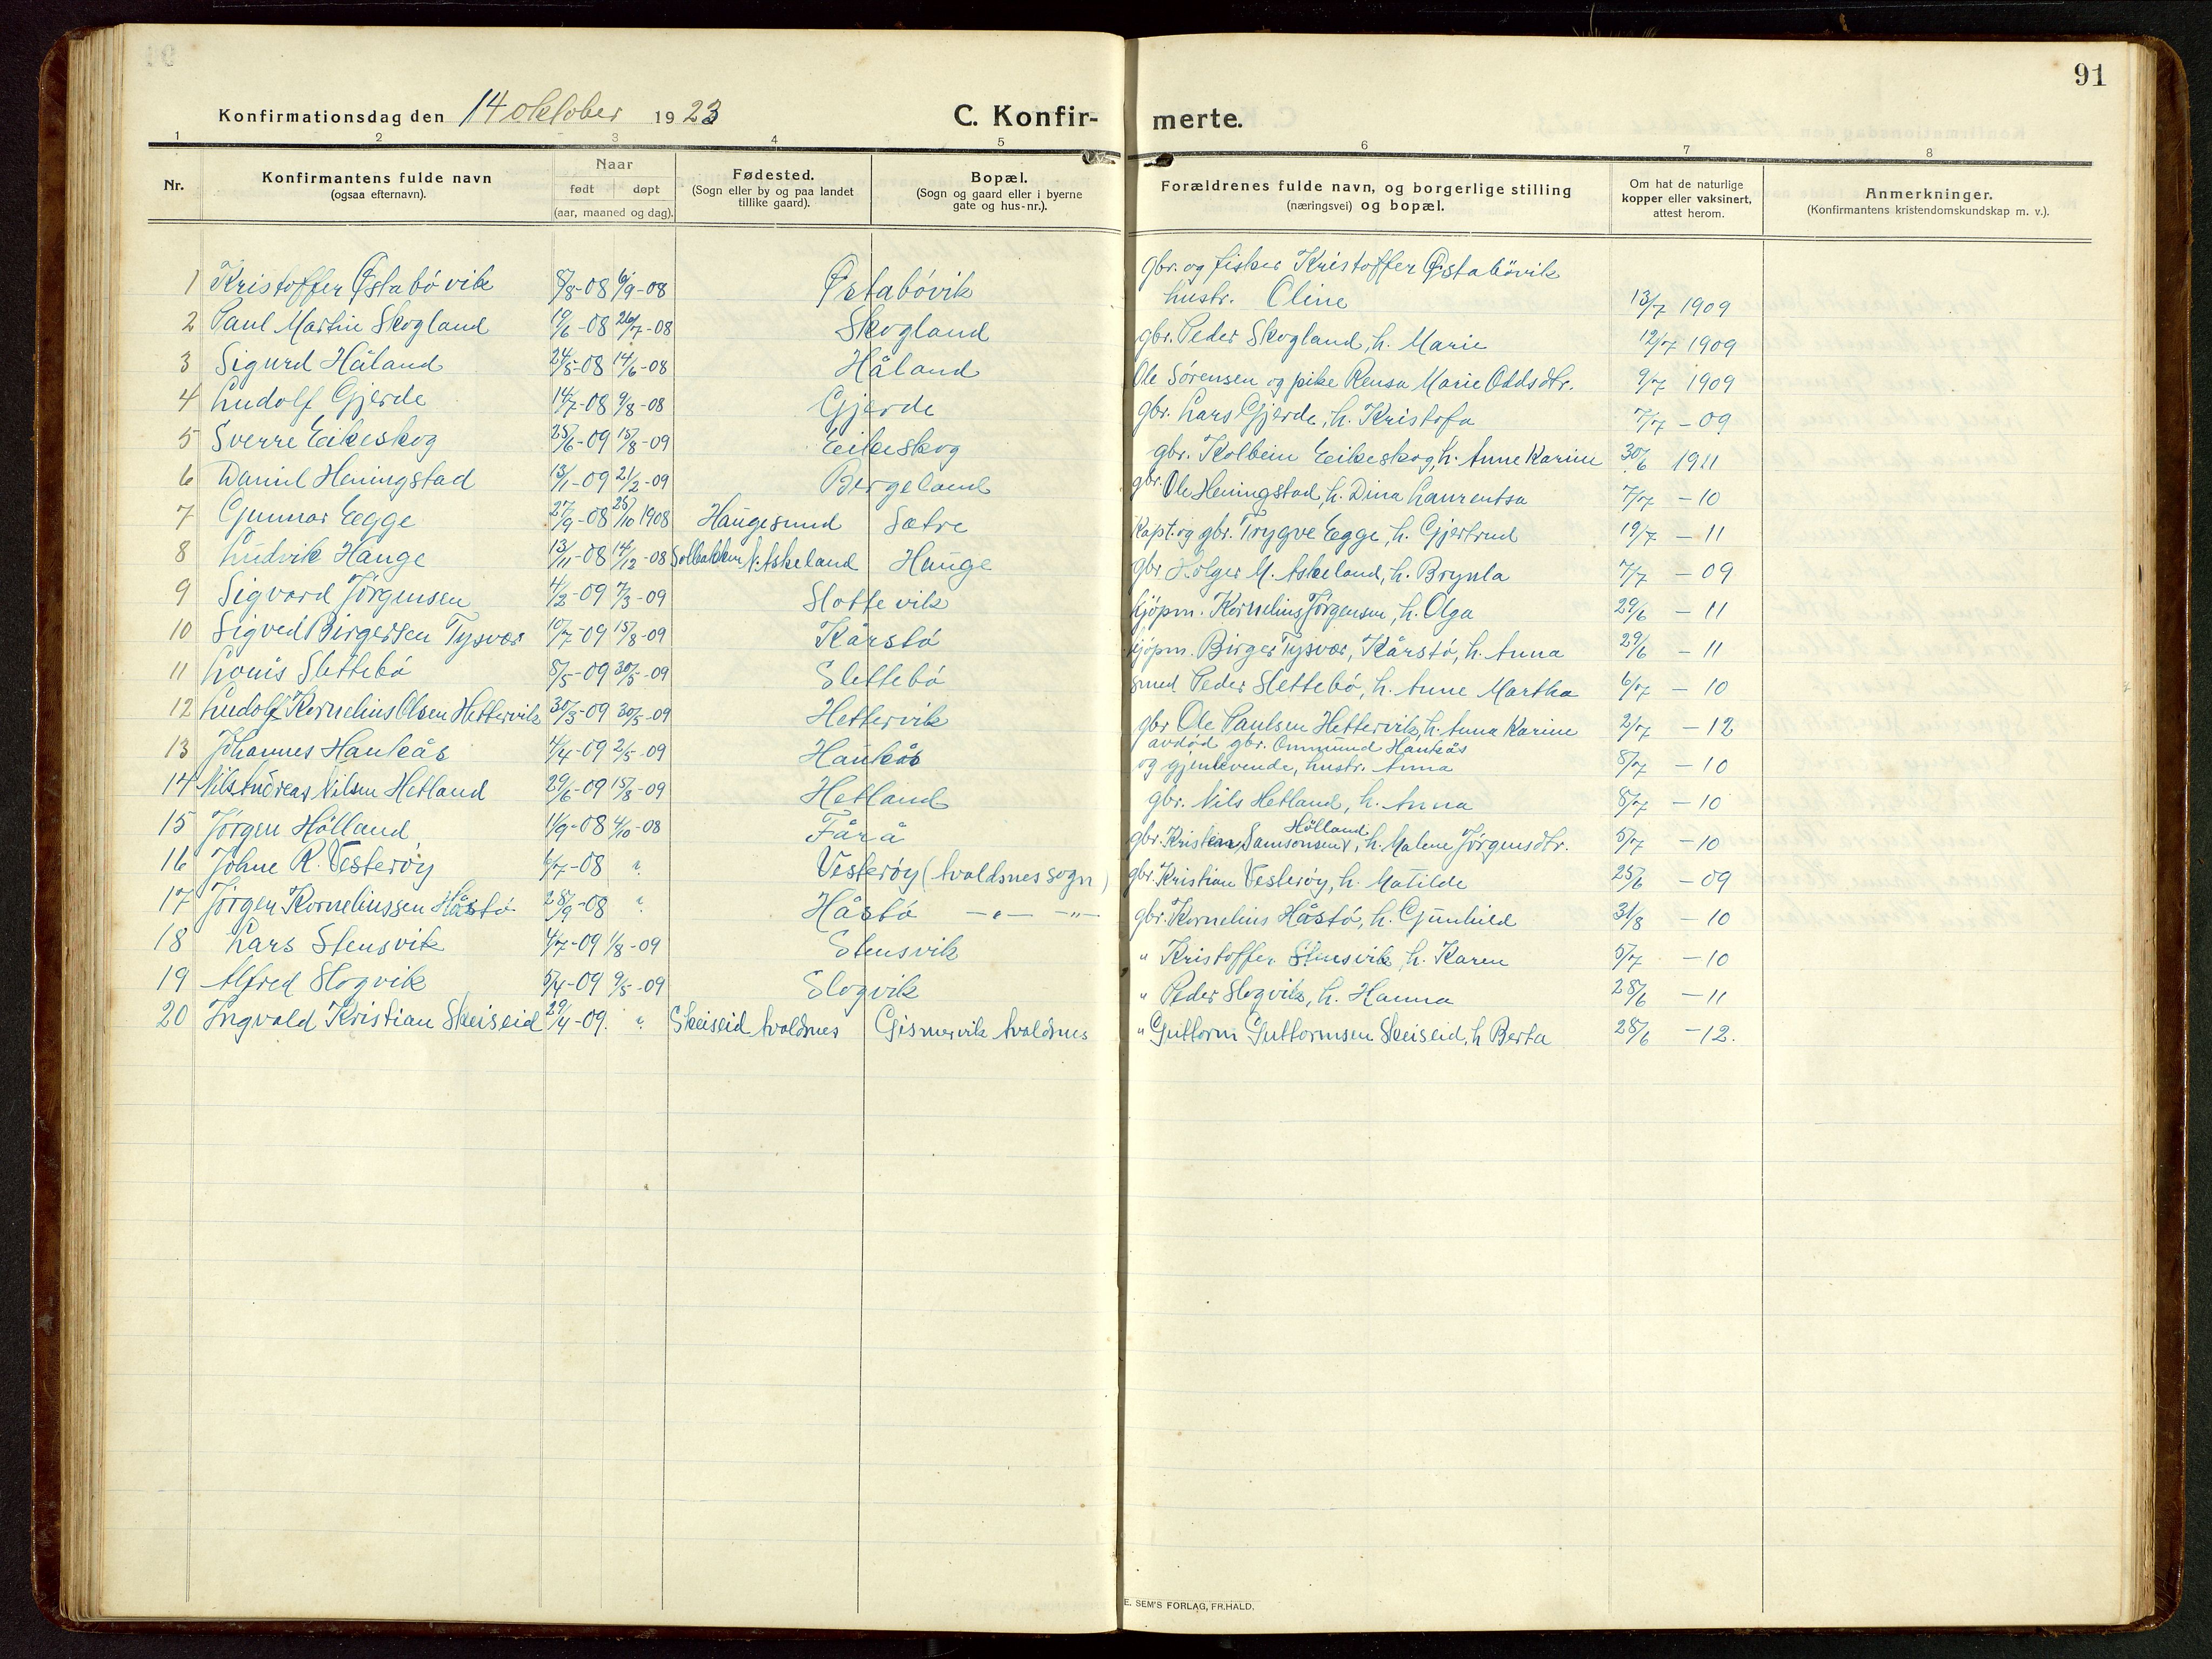 91
Konfirmationsdag den 14 oktober 1923 C. Konfirmerte.
1 2 3 4 5 6 7 8
Nr.
Konfirmantens fulde navn
(ogsaa efternavn).
Naar
født døpt
(aar, maaned og dag).
Fødested.
(Sogn eller by og paa landet
tillike gaard).
Bopæl.
(Sogn og gaard eller i byerne
gate og hus-nr.).
Forældrenes fulde navn, og borgerlige stilling
(næringsvei) og bopæl.
Om hat de naturlige
kopper eller vaksinert,
attest herom.
Anmerkninger.
(Konfirmantens kristendomskundskap m. v.).
1 Kristoffer Østabövik 8/8-08 6/9-08 Østabövik gbr. og fisker Kristoffer Østabövik
hustr. Oline 13/7 1909
2 Paul Martin Skogland 19/6-08 26/7-08 Skogland gbr. Peder Skogland, h. Marie 12/7 1909
3 Sigurd Håland 24/5-08 14/6-08 Håland Ole Sörensen og pike Rensa Marie Oddsdtr. 9/7 1909
4 Ludolf Gjerde 14/7-08 9/8-08 Gjerde gbr. Lars Gjerde, h. Kristofa 7/7 -09
5 Sverre Eikeskog 25/6-09 15/8-09 Eikeskog gbr. Kolbein Eikeskog, h. Anne Karine 30/6 1911
6 Daniel Heningstad 13/1-09 21/2-09 Bergeland gbr. Ole Heningstad, h. Dina Laurentsa 7/7 -10
7 Gunnar Egge 27/9-08 25/10 1908 Haugesund Sætre Kapt. og gbr. Trygve Egge, h. Gjertrud 19/7 -11
8 Ludvik Hauge 13/11-08 14/12-08 Solbakken N. Askeland Hauge gbr. Holger M. Askeland, h. Brynla 7/7 -09
9 Sigvard Jörgensen 4/2-09 7/3-09 Slottevik kjöpm. Kornelius Jörgensen, h. Olga 29/6 -11
10 Sigved Birgersen Tysvær 10/7-09 15/8-09 Kårstö kjöpm. Birger Tysvær, Kårstö, h. Anna 29/6 -11
11 Louis Slettebö 8/5-09 30/5-09 Slettebö smed Peder Slettebö, h. Anne Martha 6/7 -10
12 Ludolf Kornelius Olsen Hettervik 30/3-09 30/5-09 Hettervik gbr Ole Paulsen Hettervik, h. Anna Karine 2/7 -12
13 Johannes Haukås 4/4-09 2/5-09 Haukås avdöd gbr. Ommund Haukås
og gjenlevende, hustr. Anna 8/7 -10
14 Nils Andreas Nilsen Hetland 29/6-09 15/8-09 Hetland gbr. Nils Hetland, h. Anna 8/7 -10
15 Jörgen Hölland 11/9-08 4/10-08 Fårå gbr. Kristian Samsonsen Hölland, h. Malene Jörgensdtr. 5/7 -10
16 Johne R. Vesteröy 6/7-08 " Vesteröy (Avaldsnes sogn) gbr. Kristian Vesteröy, h. Matilde 25/6 -09
17 Jörgen Korneliussen Håstö 28/9-08 " Håstö -"- -"- gbr. Kornelius Håstö, h. Gunhild 31/8 -10
18 Lars Stensvik 4/7-09 1/8-09 Stensvik " Kristoffer Stensvik h. Karen 5/7 -10
19 Alfred Slogvik 5/4-09 9/5-09 Slogvik " Peder Slogvik, h. Hanna 28/6 -11
20 Ingvald Kristian Skeiseid 29/4-09. " Skeiseid Avaldsnes Gismervik Avaldsnes " Guttorm Guttormsen Skeiseid, h Berta 28/6 -12.
E. SEM'S FORLAG, FR.HALD.